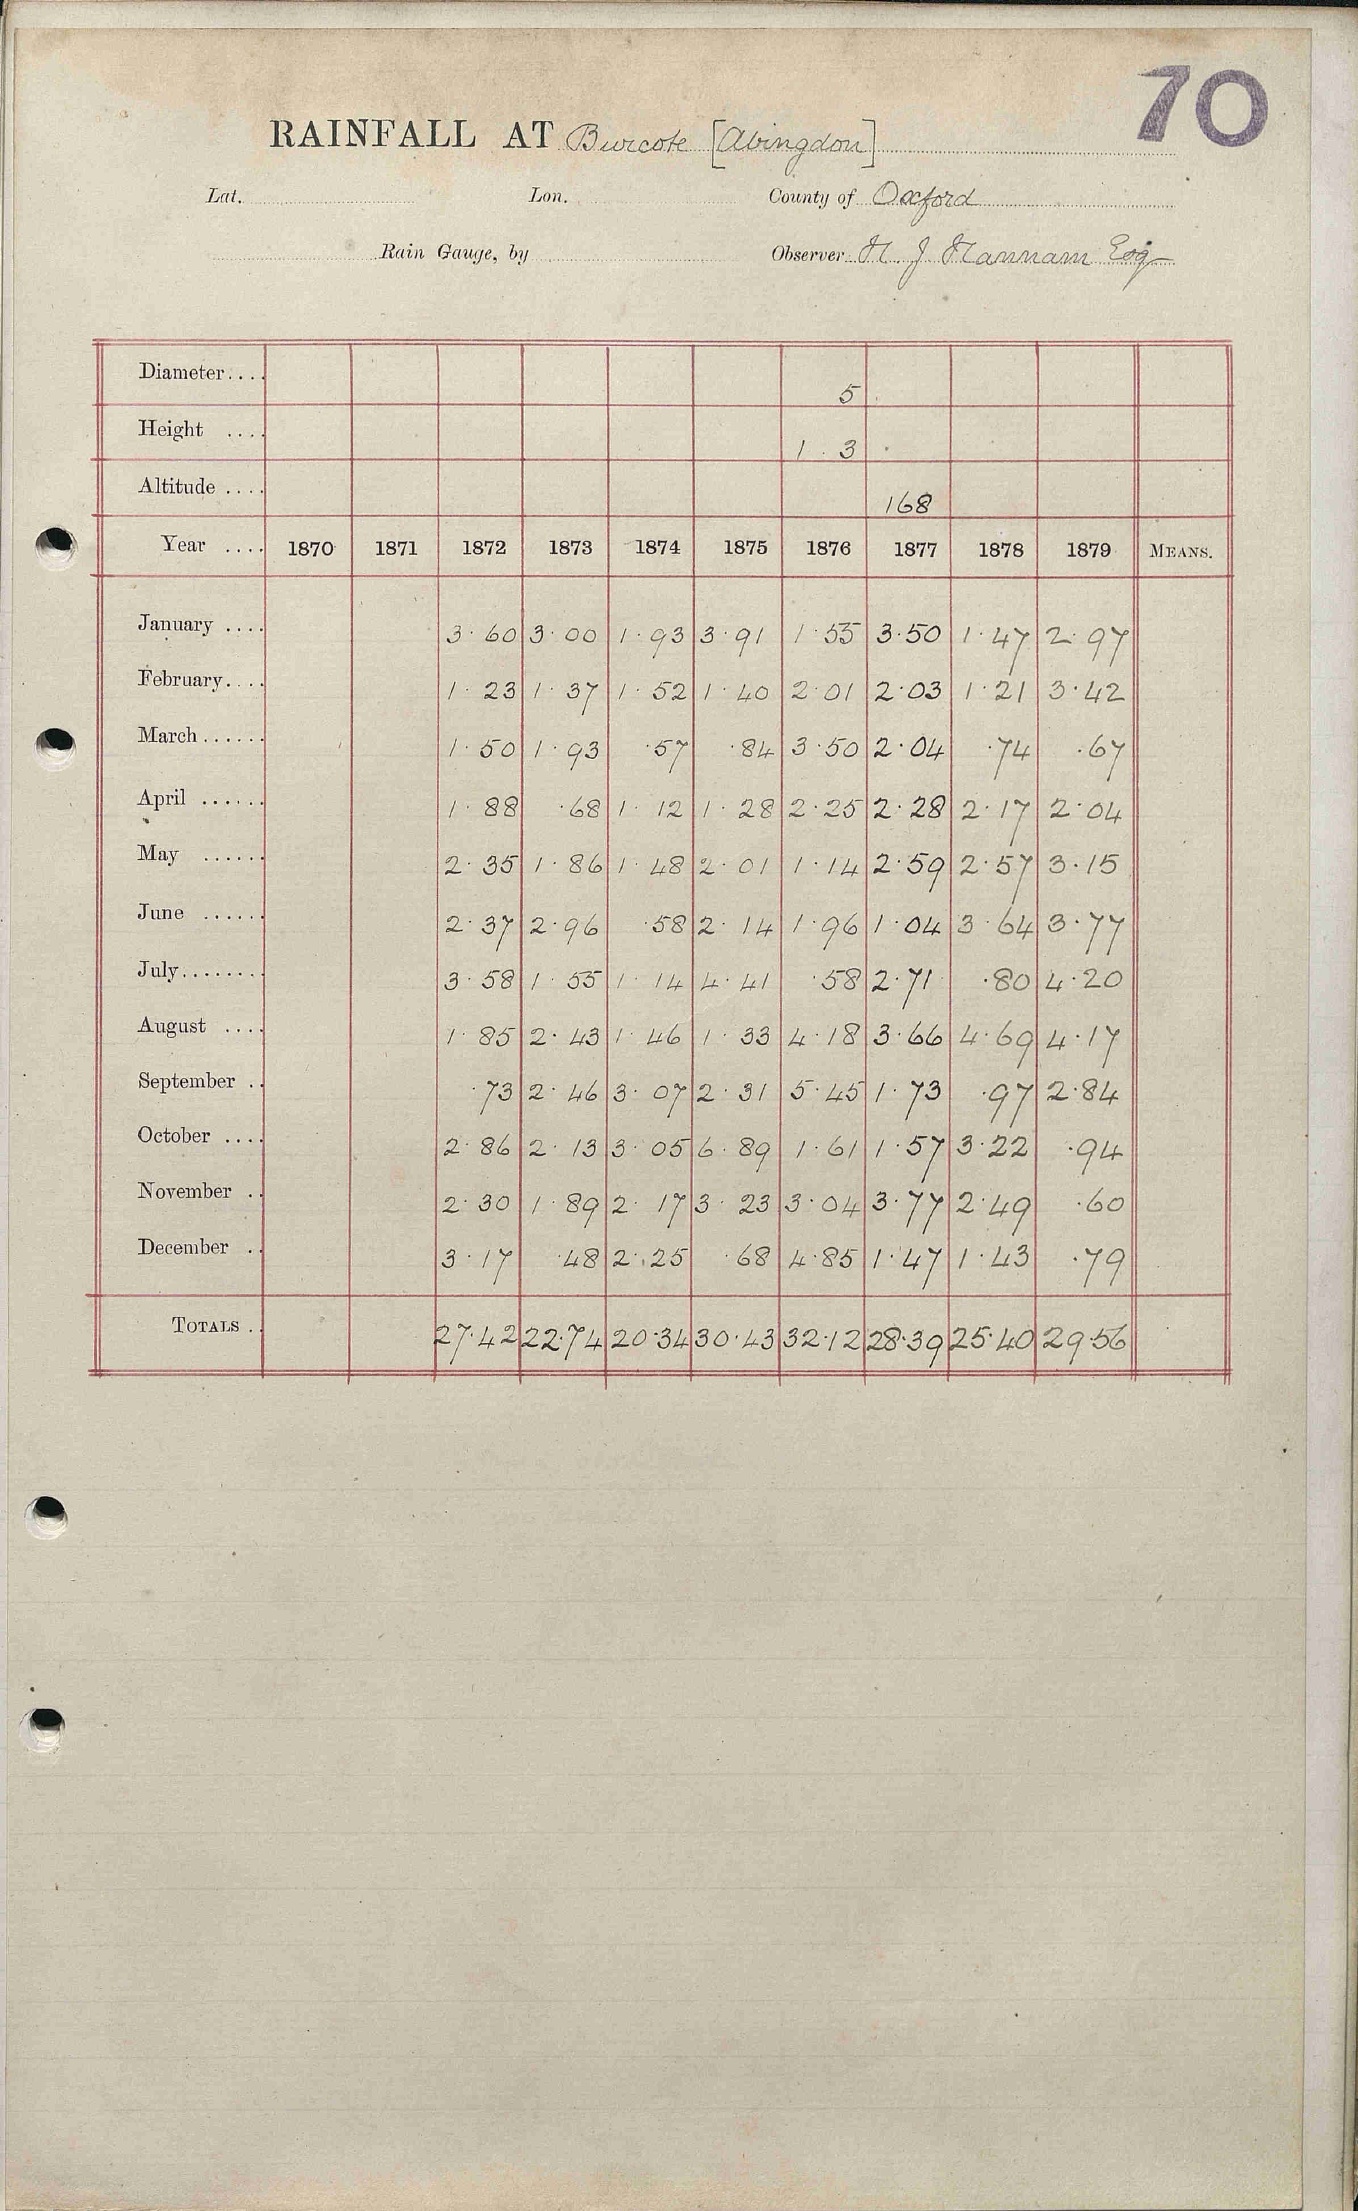 70
RAINFALL AT Burcote [Abingdon]
Lat. Lon. County of Oxford
Rain Gauge, by Observer H. J. Hannam Esq
Diameter.... 5
Height .... 1 . 3
Altitude .... 168
Year .... 1870 1871 1872 1873 1874 1875 1876 1877 1878 1879 MEANS.
January .... 3·60 3·00 1·93 3·91 1·55 3·50 1·47 2·97
February.... 1·23 1·37 1·52 1·40 2·01 2·03 1·21 3·42
March...... 1·50 1·93 ·57 ·84 3·50 2·04 ·74 ·67
April ...... 1·88 ·68 1·12 1·28 2·25 2·28 2·17 2·04
May ...... 2·35 1·86 1·48 2·01 1·14 2·59 2·57 3·15
June ...... 2·37 2·96 ·58 2·14 1·96 1·04 3·64 3·77
July........ 3·58 1·55 1·14 4·41 ·58 2·71 ·80 4·20
August .... 1·85 2·43 1·46 1·33 4·18 3·66 4·69 4·17
September .. ·73 2·46 3·07 2·31 5·45 1·73 ·97 2·84
October .... 2·86 2·13 3·05 6·89 1·61 1·57 3·22 ·94
November .. 2·30 1·89 2·17 3·23 3·04 3·77 2·49 ·60
December .. 3·17 ·48 2·25 ·68 4·85 1·47 1·43 ·79
TOTALS .. 27·42 22·74 20·34 30·43 32·12 28·39 25·40 29·56